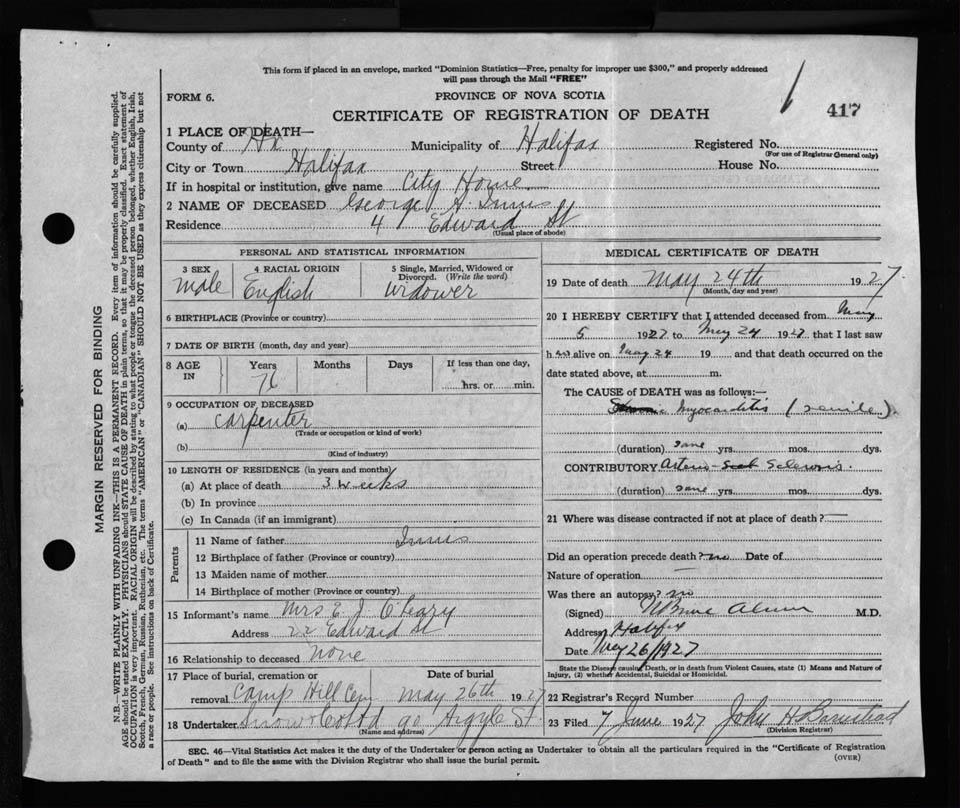 This form if placed in an envelope, marked "Dominion Statistics—Free, penalty for improper use $300," and properly addressed
will pass through the Mail "FREE"
FORM 6.
PROVINCE OF NOVA SCOTIA
417
CERTIFICATE OF REGISTRATION OF DEATH
1 PLACE OF DEATH—
County of Hx Municipality of Halifax Registered No.
(For use of Registrar General only)
City or Town Halifax Street House No.
If in hospital or institution, give name City Home
2 NAME OF DECEASED George A. Innis
Residence 4 Edward St
(Usual place of abode)
PERSONAL AND STATISTICAL INFORMATION
3 SEX 4 RACIAL ORIGIN 5 Single, Married, Widowed or
Divorced. (Write the word)
male English widower
6 BIRTHPLACE (Province or country)
7 DATE OF BIRTH (month, day and year)
8 AGE IN Years Months Days If less than one day,
76 hrs. or min.
9 OCCUPATION OF DECEASED
(a) carpenter
(Trade or occupation or kind of work)
(b)
(Kind of industry)
10 LENGTH OF RESIDENCE (in years and months)
(a) At place of death 3 weeks
(b) In province
(c) In Canada (if an immigrant)
Parents
11 Name of father Innis
12 Birthplace of father (Province or country)
13 Maiden name of mother
14 Birthplace of mother (Province or country)
15 Informant's name Mrs E. J. O'Leary
Address 22 Edward St
16 Relationship to deceased none
17 Place of burial, cremation or Date of burial
removal Camp Hill Cem May 26th 1927
18 Undertaker Snow & Co Ltd 90 Argyle St.
(Name and address)
MEDICAL CERTIFICATE OF DEATH
19 Date of death May 24th 1927
(Month, day and year)
20 I HEREBY CERTIFY that I attended deceased from May
5 1927 to May 24 1927 that I last saw
h im alive on May 24 19 and that death occurred on the
date stated above, at m.
The CAUSE of DEATH was as follows:—
myocarditis (senile)
(duration) yrs. mos. dys.
CONTRIBUTORY Arterio- Sclerosis.
(duration) yrs. mos. dys.
21 Where was disease contracted if not at place of death? —
Did an operation precede death? no Date of
Nature of operation —
Was there an autopsy? no
(Signed) M.D.
Address Halifax
Date May 26/1927
State the Disease causing Death, or in death from Violent Causes, state (1) Means and Nature of
Injury, (2) whether Accidental, Suicidal or Homicidal.
22 Registrar's Record Number
23 Filed 7 June 1927 John H Barnstead
(Division Registrar)
SEC. 46—Vital Statistics Act makes it the duty of the Undertaker or person acting as Undertaker to obtain all the particulars required in the "Certificate of Registration
of Death" and to file the same with the Division Registrar who shall issue the burial permit.
(OVER)
MARGIN RESERVED FOR BINDING
N.B.—WRITE PLAINLY WITH UNFADING INK—THIS IS A PERMANENT RECORD. Every item of information should be carefully supplied.
AGE should be stated EXACTLY. PHYSICIANS should STATE CAUSE OF DEATH in plain terms, so that it may be properly classified. Exact statement of
OCCUPATION is very important. RACIAL ORIGIN will be described by stating to what people or tongue the deceased person belonged, whether English, Irish,
Scotch, French, German, Russian, Ruthenian, etc. The terms "AMERICAN" or "CANADIAN" SHOULD NOT BE USED as they express citizenship but not
a race or people. See instructions on back of Certificate.